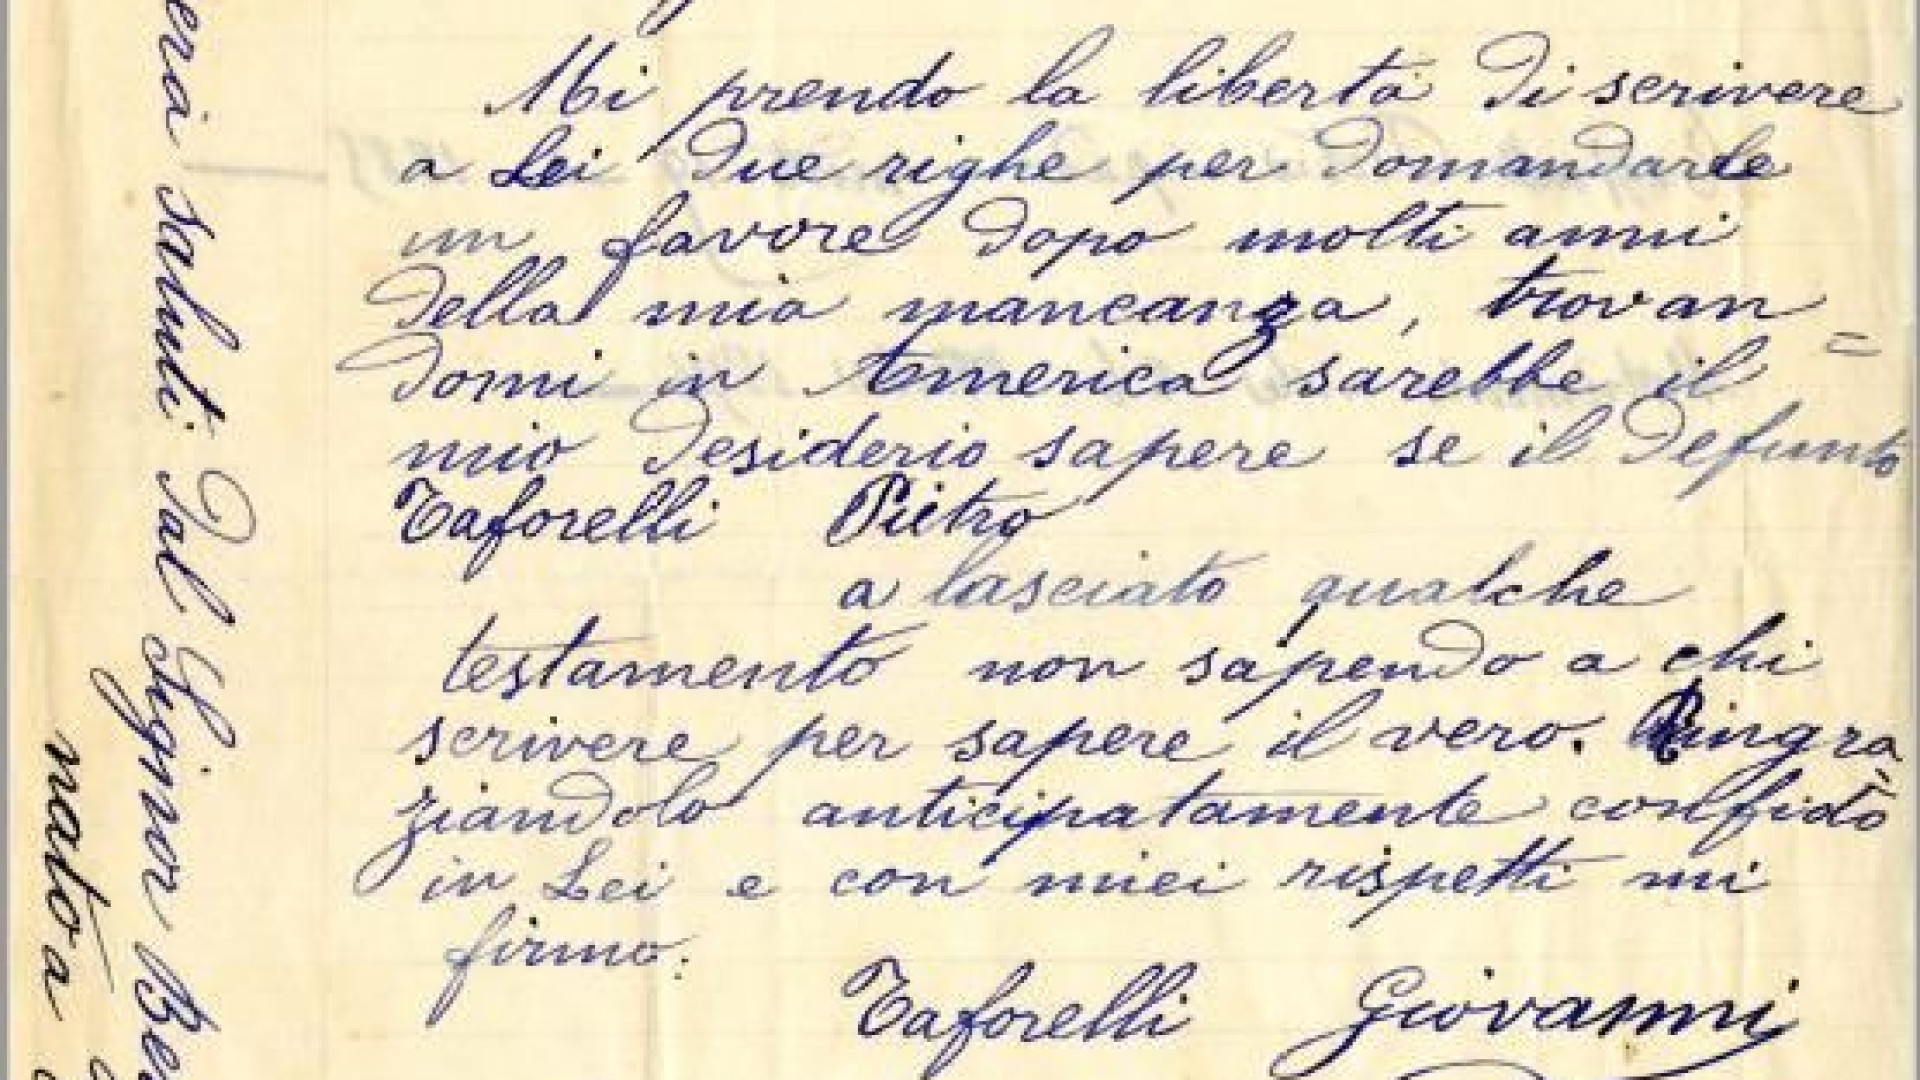 Mi prendo la libertà di scrivere
a Lei due righe per domandarle
un favore dopo molti anni
della mia mancanza, trovan
=
domi in America sarebbe il
mio desiderio sapere se il defunto
Taforelli Pietro
a lasciato qualche
testamento non sapendo a chi
scrivere per sapere il vero. Ringra
ziandolo anticipatamente confido
in Lei e con miei rispetti mi
firmo:
Taforelli Giovanni
saluti dal Signor
nato a